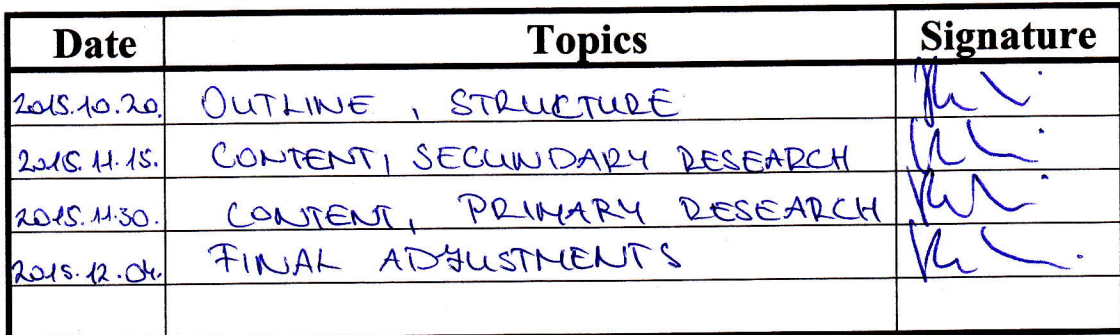 Date Topics Signature
2015.10.20. OUTLINE, STRUCTURE
2015.11.15. CONTENT, SECUNDARY RESEARCH
2015.11.30. CONTENT, PRIMARY RESEARCH
2015.12.04. FINAL ADJUSTMENTS